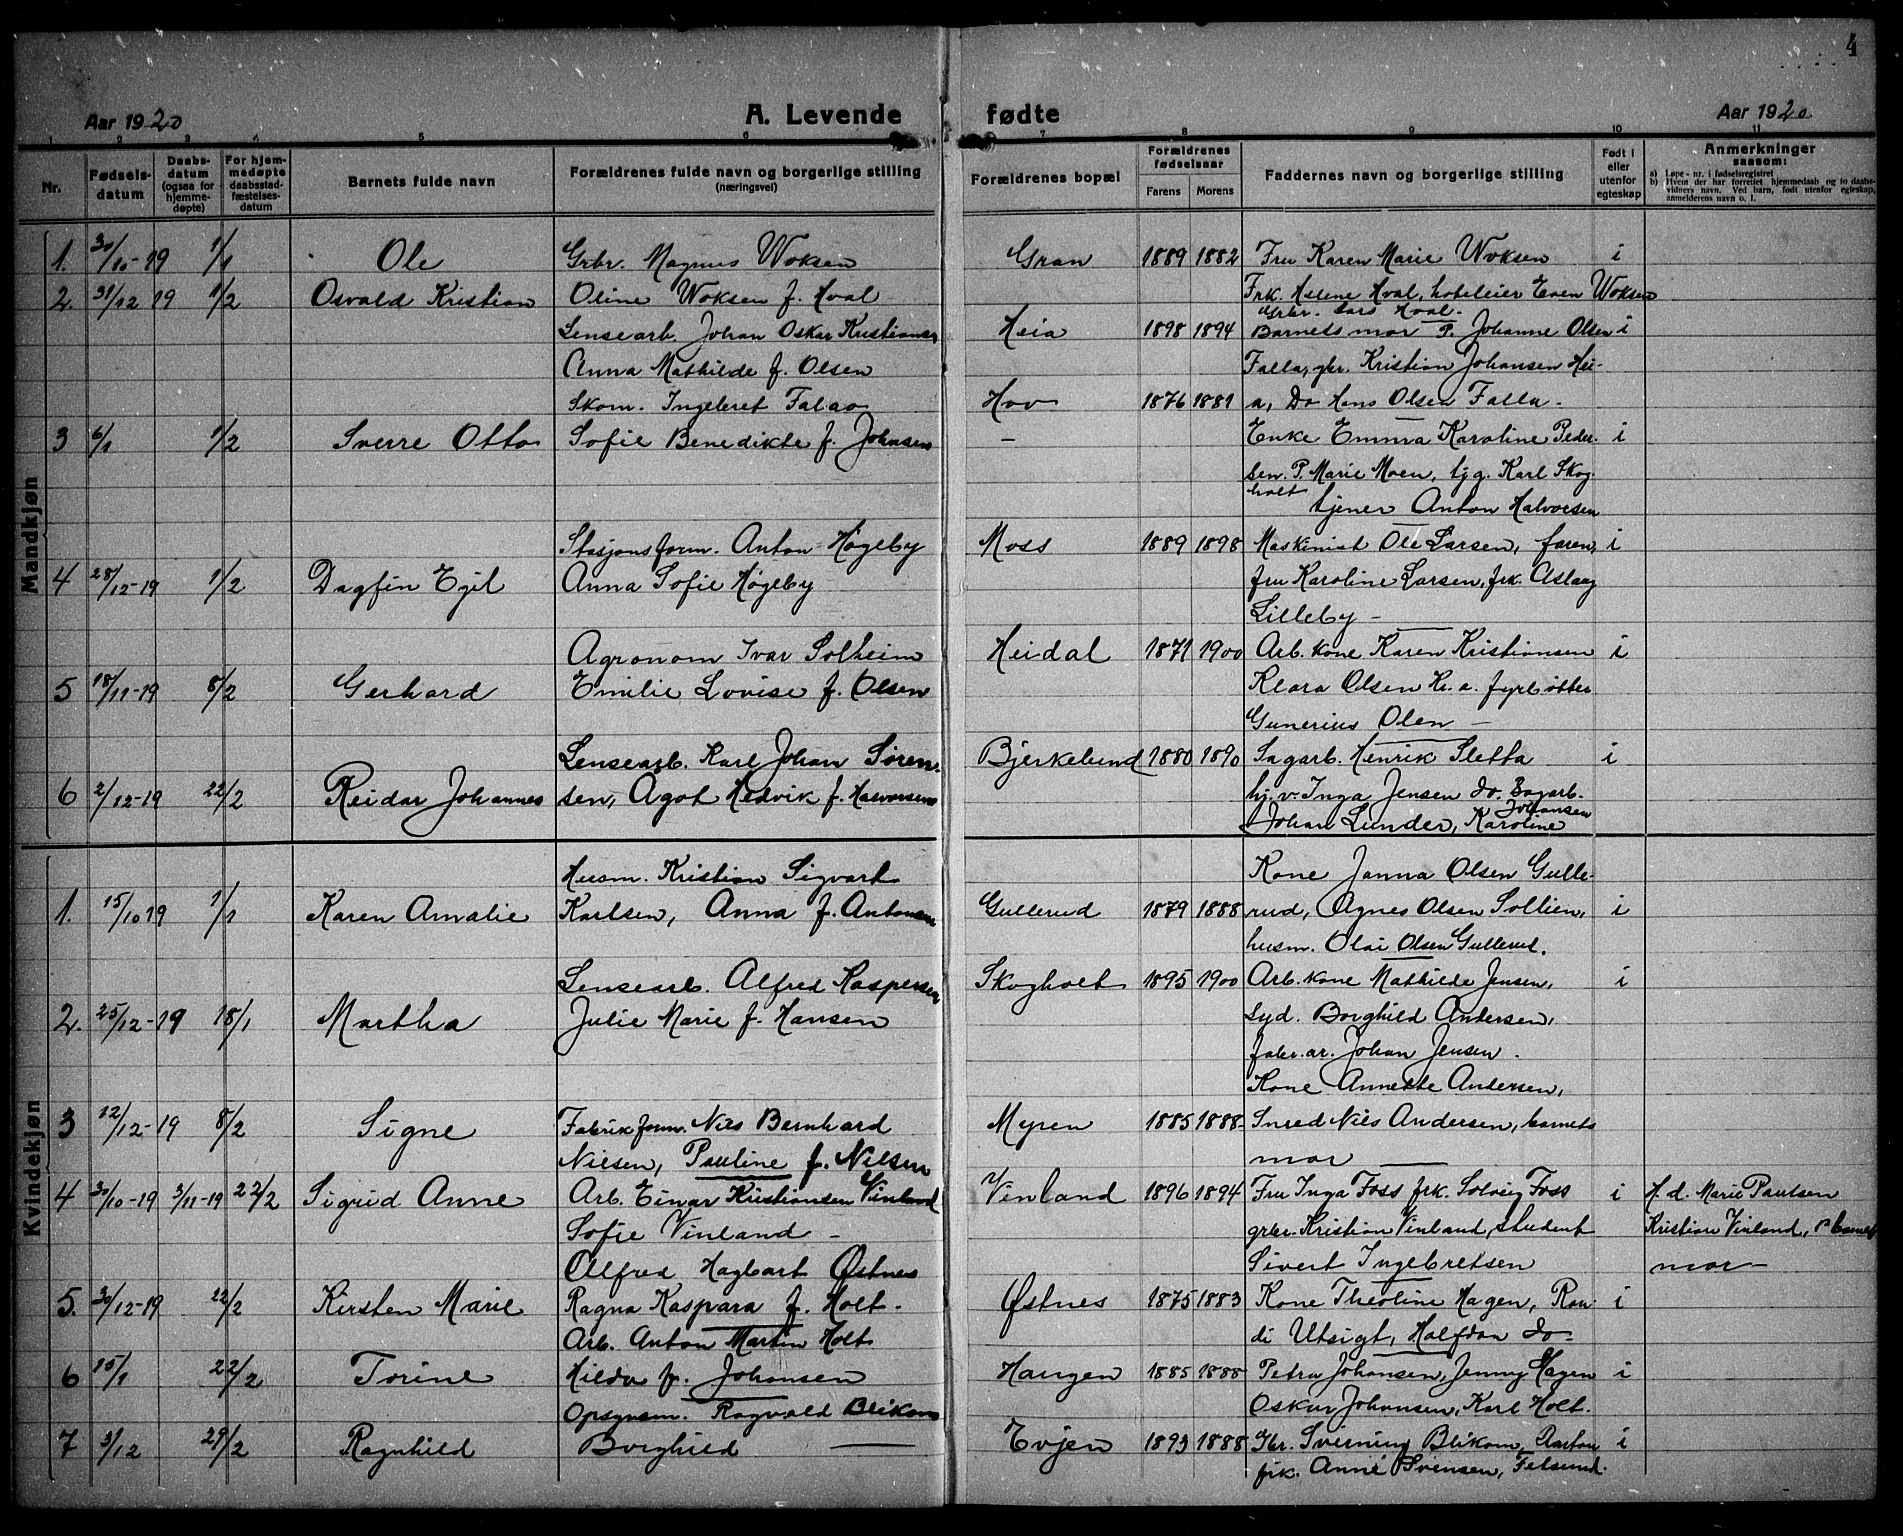 4
Aar 1920 A. Levende fødte Aar 1920
1 2 3 4 5 6 7 8 9 10 11
Nr. Fødsels-datum Daabs-datum (ogsaa for hjemme-døpte) For hjem-medøpte daabsstad-fæstelses-datum Barnets fulde navn Forældrenes fulde navn og borgerlige stilling (næringsvei) Forældrenes bopæl Forældrenes fødselsaar Farens Morens Faddernes navn og borgerlige stilling Født i eller utenfor egteskap Anmerkninger saasom:
a) Løpe-nr. i fødselsregistret
b) Hvem der har forrettet hjemmedaab og to daabs-vidners navn. Ved barn, født utenfor egteskap, anmelderens navn o. l.
Mandkjøn
1. 30/10-19 1/1 Ole Grbr. Magnus Woksen Gran 1889 1882 Fru Karen Marie Woksen i
2. 31/12 19 1/2 Osvald Kristian Oline Woksen f. Hval Frk. Helene Hval, hoteleier Even Woksen
Grbr. Lars Hval.
Lensearb. Johan Oskar Kristiansen Heia 1898 1894 Barnets mor P. Johanne Olsen i
Anna Mathilde f. Olsen Falla, gbr. Kristian Johansen Hei-
Skom. Ingebret Falao Hov 1876 1881 a, Do Hans Olsen Falla-
3 6/1 1/2 Sverre Otto Sofie Benedikte f. Johnsen — Enke Emma Karoline Peder- i
sen. P. Marie Moen, tjg. Karl Skog-
holt tjener Anton Halvorsen
Stasjonsform. Anton Høgeby Moss 1889 1898 Maskinist Ole Larsen, faren, i
4 28/12-19 1/2 Dagfin Egil Anna Sofie Høgeby fru Karoline Larsen, frk. Aslaug
Lilleby —
Agronom Ivar Solheim Heidal 1871 1900 Arb. kone Karen Kristiansen i
5 18/11-19 8/2 Gerhard Emilie Lovise f. Olsen Klara Olsen H. a. fyrbøtter
Gunerius Olen —
Lensearb. Karl Johan Søren- Bjerkelund 1880 1890 Sagarb. Henrik Sletta i
6 2/12-19 22/2 Reidar Johannes sen, Agot Hedvik f. Halvorsen hj. v. Inga Jensen do. Bagarb.
Johan Lunder, Karoline Johansen
Kvindekjøn
Husm. Kristian Sigvart Kone Janna Olsen Gulle-
1. 15/10 19 1/1 Karen Amalie Karlsen, Anna f. Antonsen Gullerud 1879 1888 rud, Agnes Olsen Sollien, i
husm. Olai Olsen Gullerud.
Lensearb. Alfred Kaspersen Skogholt 1895 1900 Arb. kone Mathilde Jensen, i
2. 25/12-19 18/1 Martha Julie Marie f. Hansen Syd. Borghild Andersen,
fabr. ar. Johan Jensen.
Kone Annette Andersen,
3 12/12-19 8/2 Signe Fabrikform. Nils Bernhard Myren 1885 1888 Snred Nils Andersen, barnets
Nilsen, Pauline f. Nilsen mor —
4 30/10-19 3/11-19 22/2 Sigrid Anne Arb. Einar Kristiansen Vinland Vinland 1896 1894 Fru Inga Foss frk. Solveig Foss i H. d. Marie Paulsen
Sofie Vinland — grbr. Kristian Vinland, student Kristian Vinland, barnets
Alfred Hagbart Østnes Sivert Ingebretsen mor —
5. 30/12-19 22/2 Kirsten Marie Ragna Kaspara f. Holt. Østnes 1875 1883 Kone Theoline Hagen, Ran- i
Arb. Anton Martin Holt di Utsigt, Halfdan do
6 15/1 22/2 Torine Hilda f. Johansen Haugen 1885 1888 Petra Johansen, Jenny Hagen i
Opsynsm. Ragvald Blikom Oskar Johansen, Karl Holt.
7 3/12 29/2 Ragnhild Borghild — Evjen 1893 1888 Gbr. Sverning Blikom, i
frk. Anne Svensen,